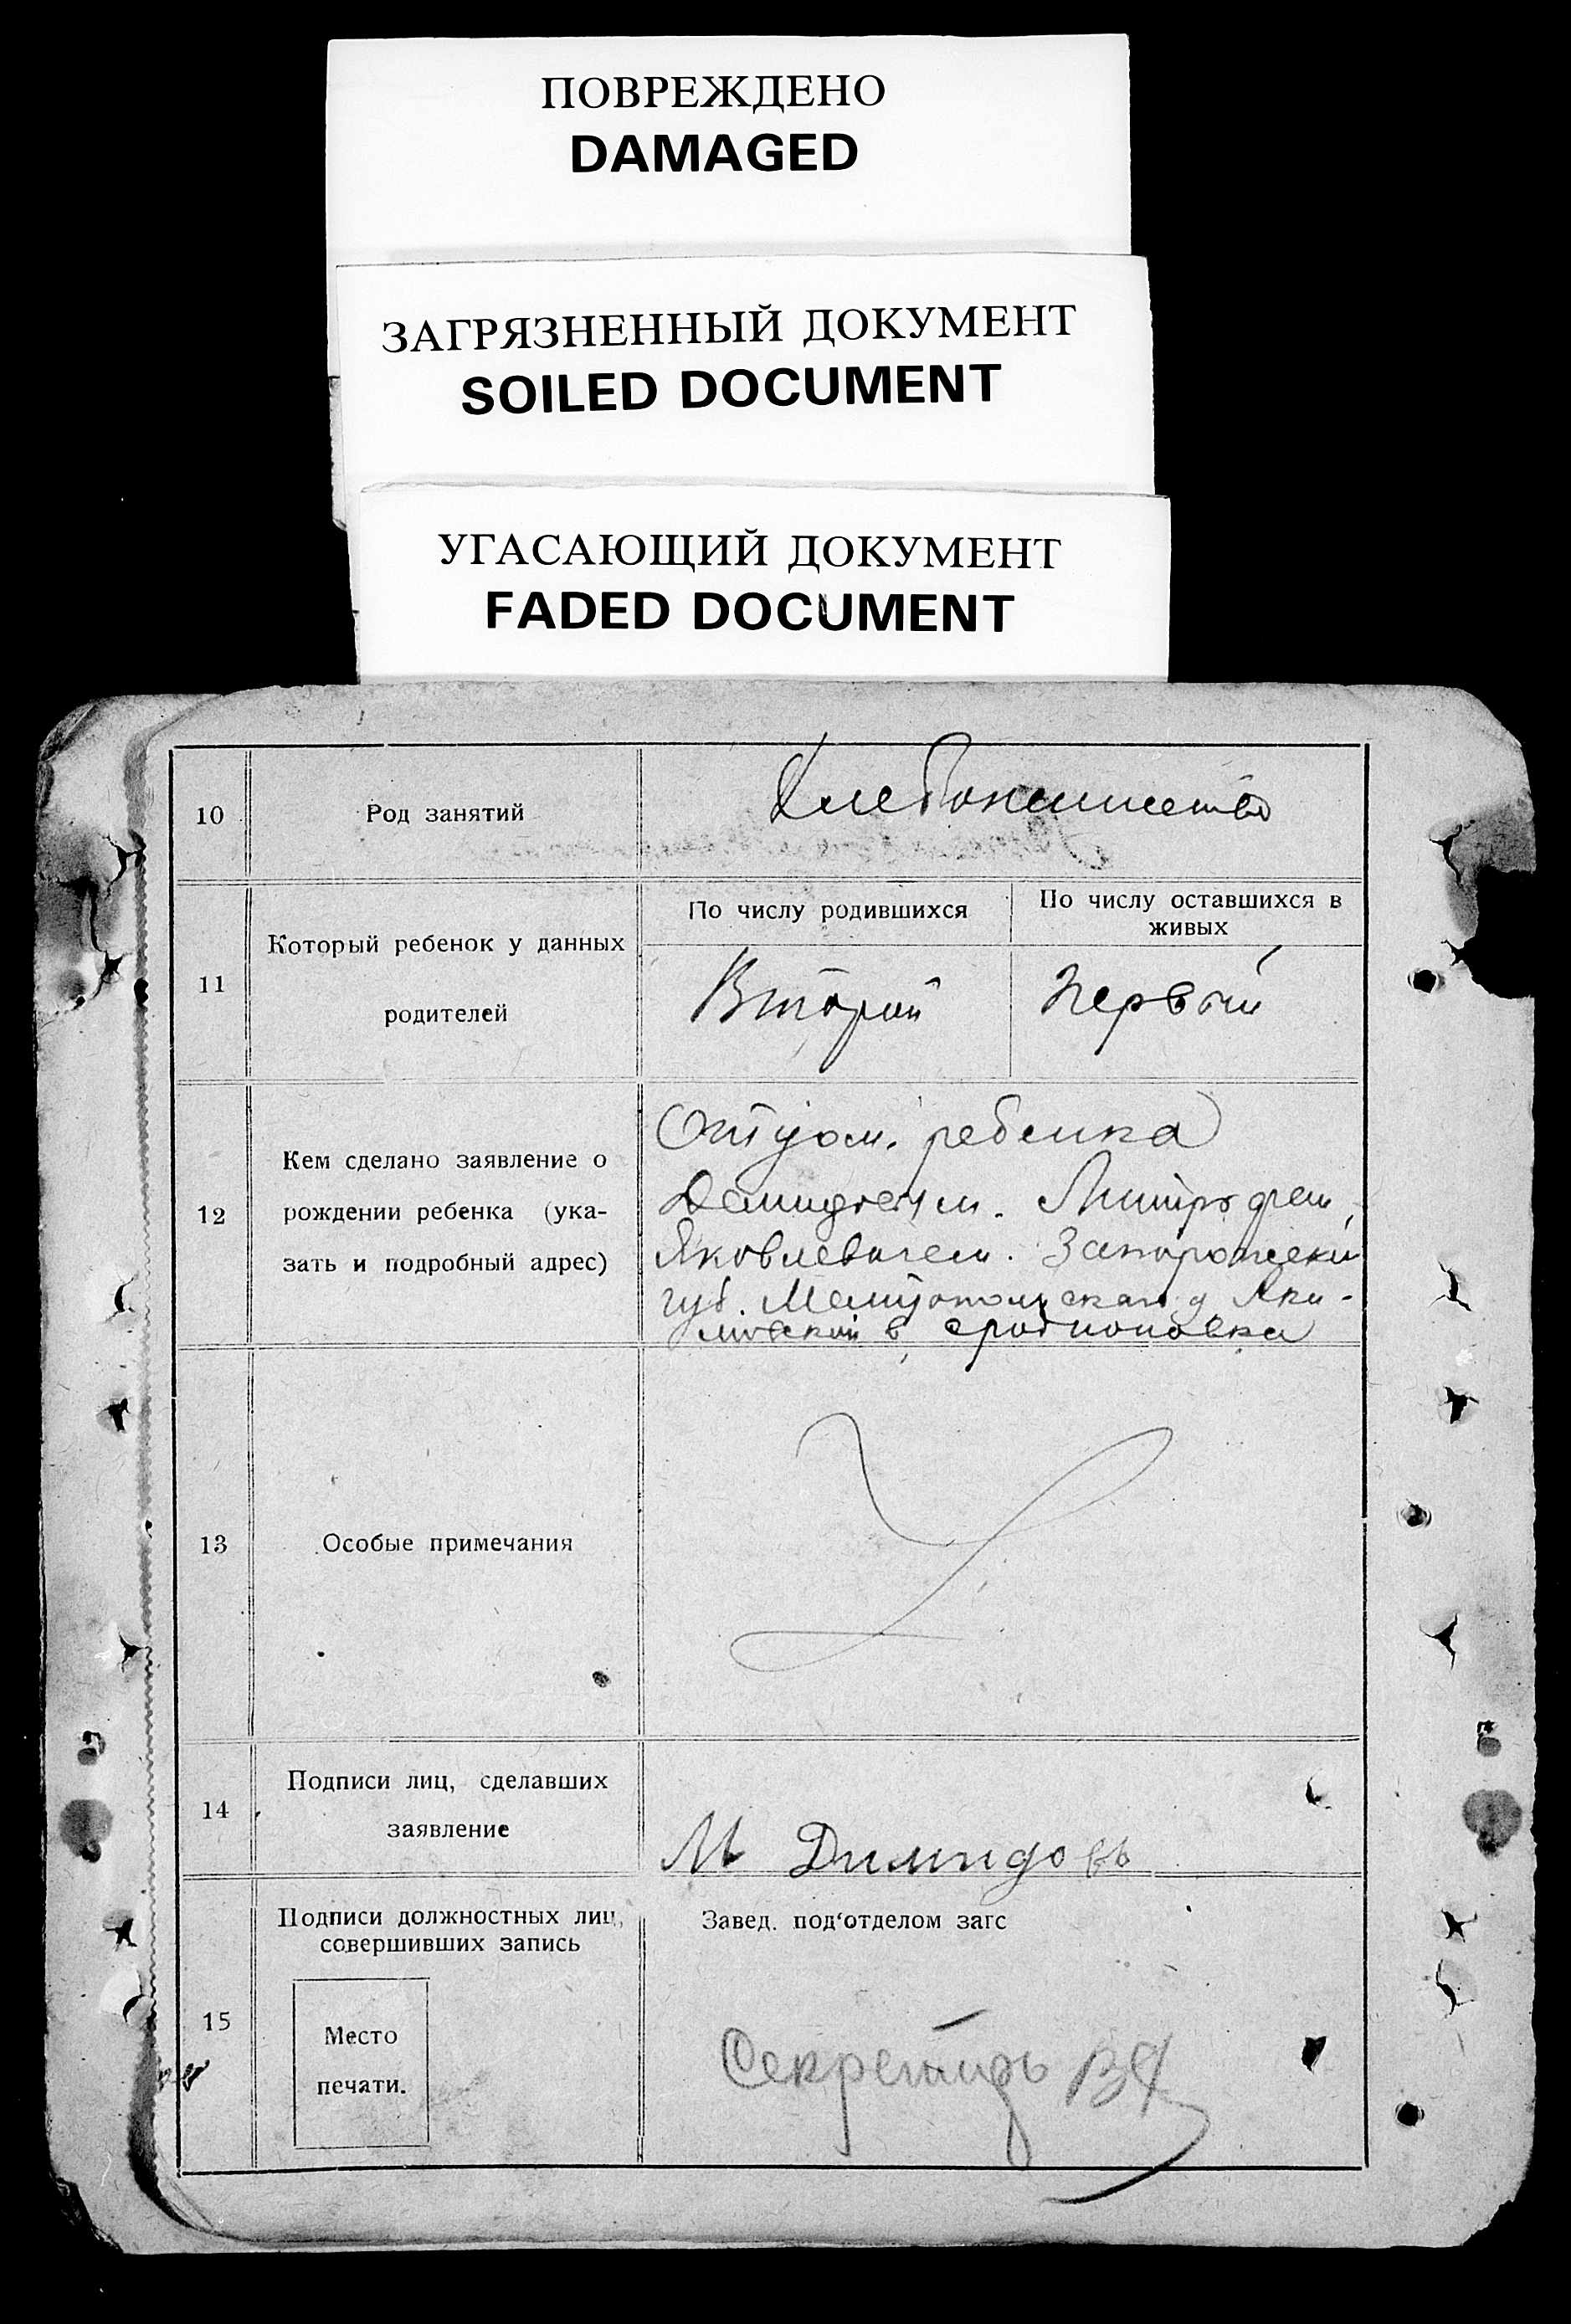 ПОВРЕЖДЕНО
DAMAGED
ЗАГРЯЗНЕННЫЙ ДОКУМЕНТ
SOILED DOCUMENT
УГАСАЮЩИЙ ДОКУМЕНТ
FADED DOCUMENT
10
Род занятий
Хлебопашество
11
Который ребенок у данных
родителей
По числу родившихся
По числу оставшихся в
живых
Второй
Первый
12
Кем сделано заявление о
рождении ребенка (ука-
зать и подробный адрес)
Отцом. ребенка
Демидовым. Митрофан
Яковлевичем. Запорожской
губ. Мелитопольскаго у Аки-
мовской в.
13
Особые примечания
14
Подписи лиц, сделавших
заявление
М Димидовъ
15
Подписи должностных лиц,
совершивших запись
Место
печати.
Завед. под'отделом загс
Секретарь